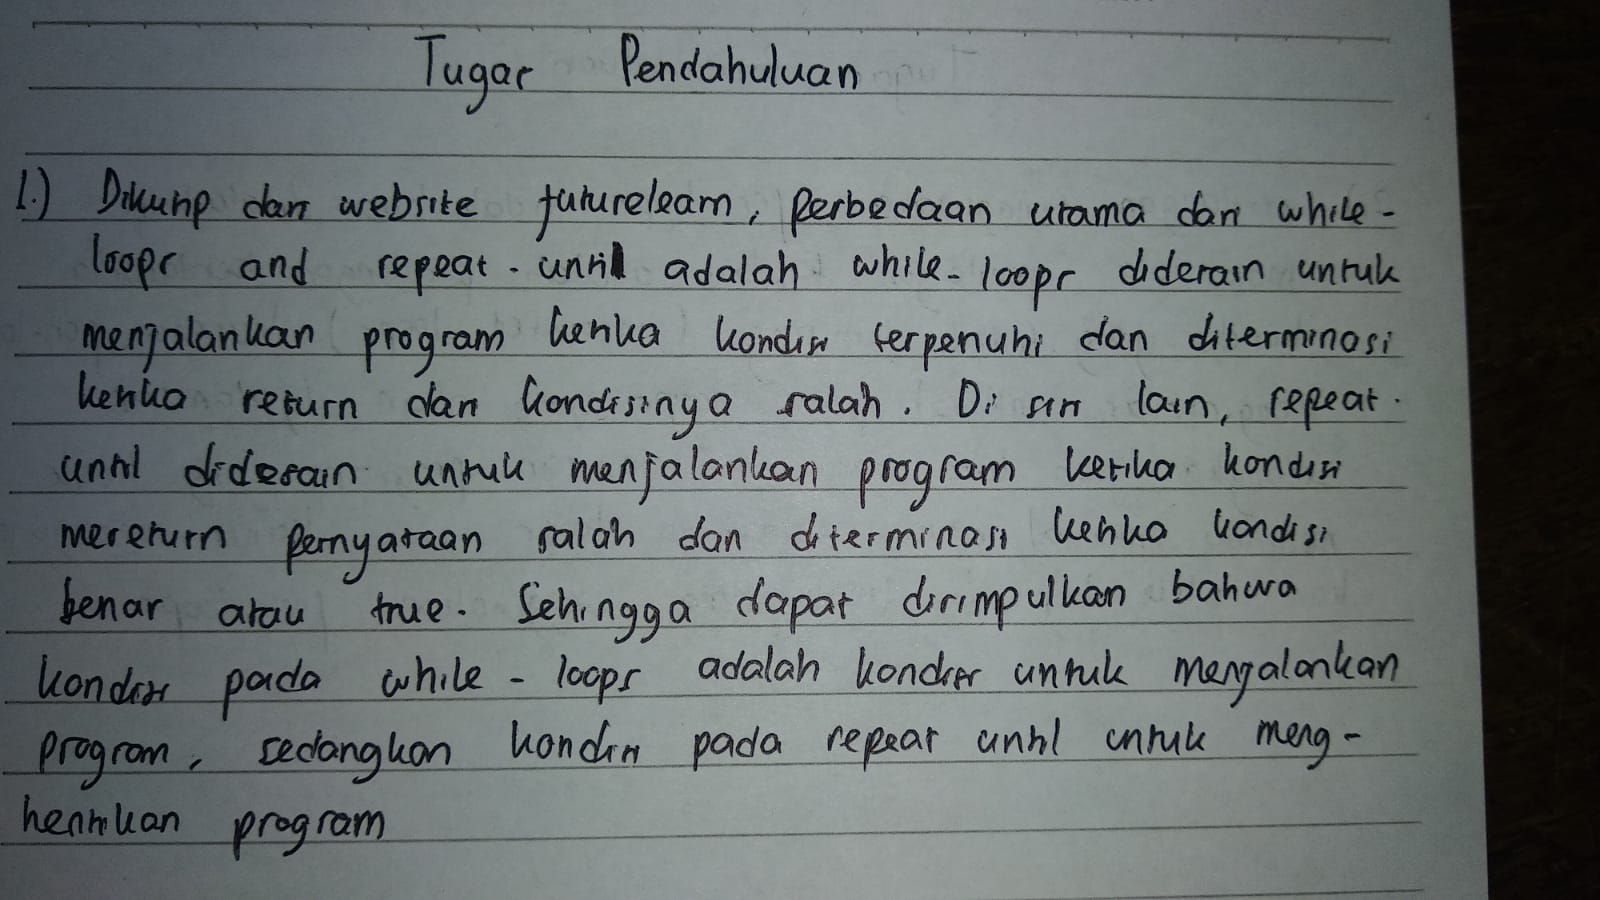 Tugas Pendahuluan
1.) Dikutip dari website futurelearn, perbedaan utama dari while-
loops and repeat-until adalah while-loops didesain untuk
menjalankan program ketika kondisi terpenuhi dan diterminasi
ketika return dan kondisinya salah. Di sisi lain, repeat-
until didesain untuk menjalankan program ketika kondisi
mereturn pernyataan salah dan diterminasi ketika kondisi
benar atau true. Sehingga dapat disimpulkan bahwa
kondisi pada while-loops adalah kondisi untuk menjalankan
program, sedangkan kondisi pada repeat until untuk meng-
hentikan program